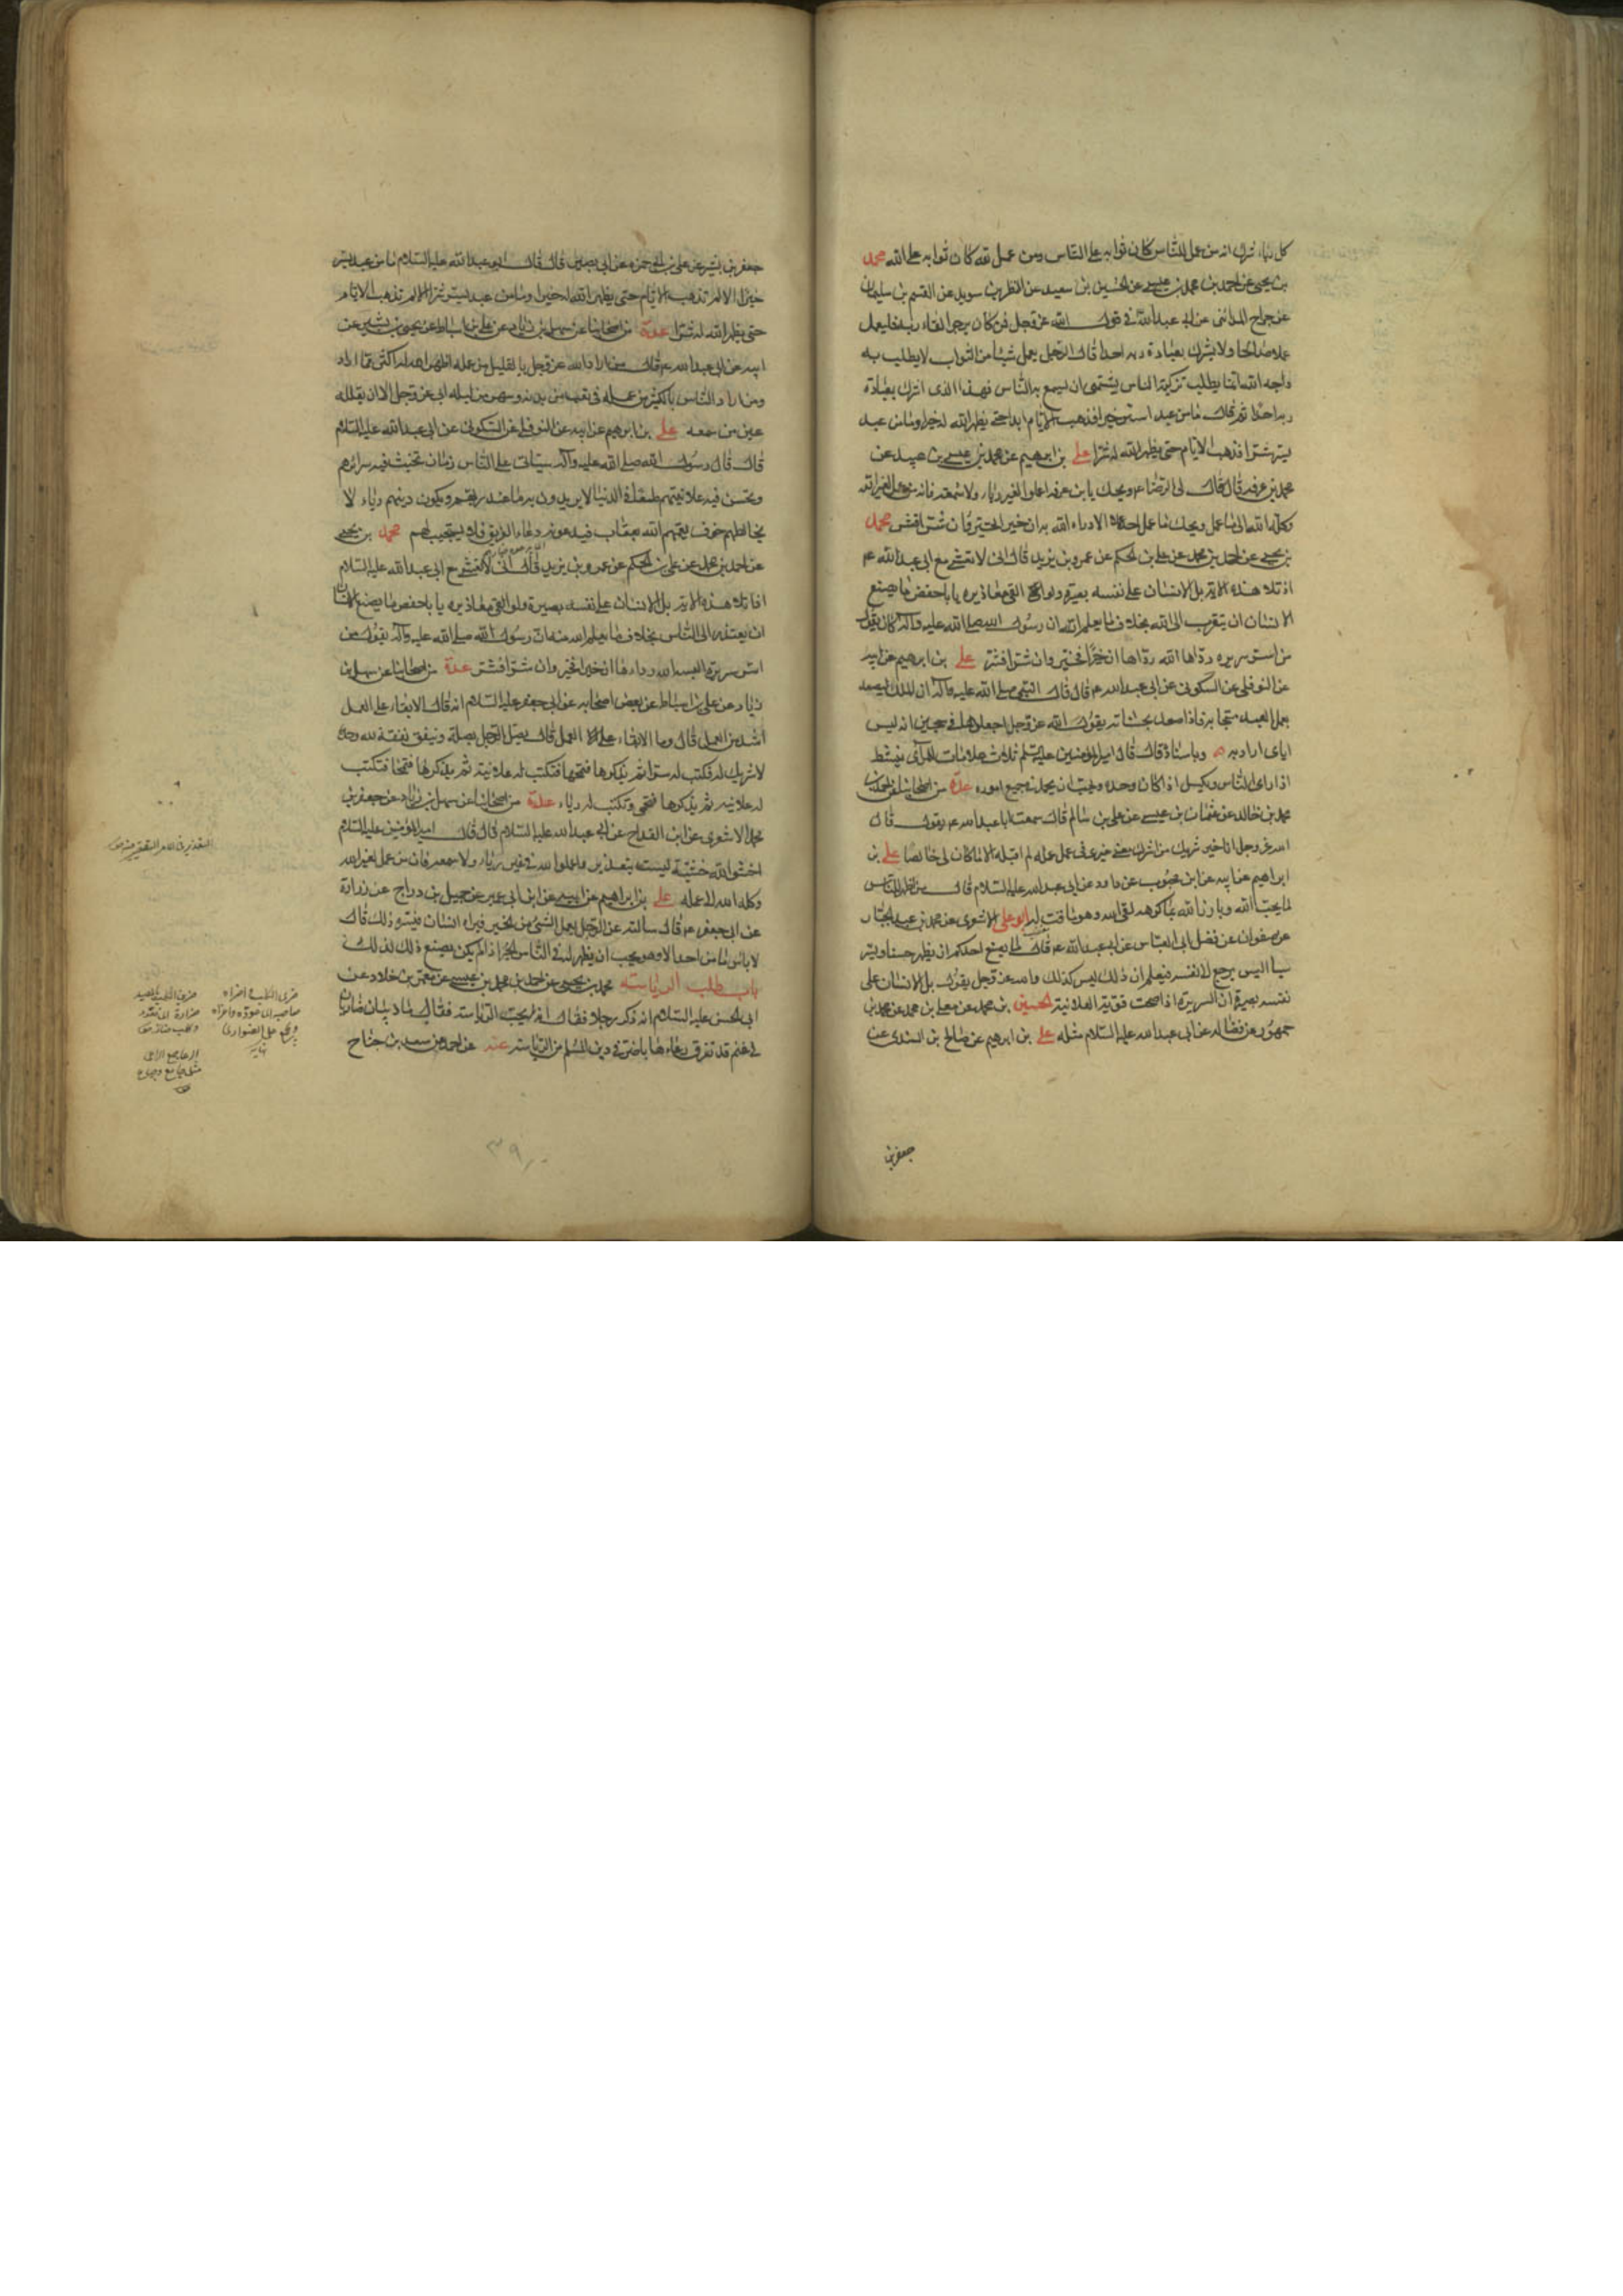 كل رياء شرك انه من عمل للناس كان ثوابه على الناس ومن عمل لله كان ثوابه على الله محمد
بن يحيى عن احمد بن محمد بن عيسى عن الحسين بن سعيد عن النضر بن سويد عن القسم بن سليمان
عن جراح المدائني عن ابي عبد الله في قول الله عز وجل فمن كان يرجوا لقاء ربه فليعمل
عملا صالحا ولا يشرك بعبادة ربه احدا قال الرجل يعمل شيئا من الثواب لا يطلب به
وجه الله انما يطلب تزكية الناس يشتهي ان يسمع به الناس فهذا الذي اشرك بعبادة
ربه احدا ثم قال ما من عبد اسر خيرا فذهبت الايام ابدا حتى يظهر الله له خيرا وما من عبد
يسر شرا فذهبت الايام حتى يظهر الله له شرا على بن ابرهيم عن محمد بن عيسى بن عبيد عن
محمد بن عرفه قال قال لي الرضا ع ويحك يا بن عرفه اعملوا لغير رياء ولا سمعه فانه من عمل لغير الله
وكله الله الى ما عمل ويحك ما عمل احد الا رداه الله به ان خير الخير وان شر افشر محمد
بن يحيى عن احمد بن محمد عن على بن الحكم عن عمر بن يزيد قال اني لاتعشى مع ابي عبد الله ع
اذ تلا هذه الاية بل الانسان على نفسه بصيرة ولو القى معاذيره يا با حفص ما يصنع
الانسان ان يتقرب الى الله بخلاف ما يعلم الله ان رسول الله صلى الله عليه وآله كان يقول
من اسر سريرة رداه الله رداها ان خيرا فخير وان شرا فشر على بن ابرهيم عن ابيه
عن النوفلي عن السكوني عن ابي عبد الله ع قال قال النبي صلى الله عليه وآله ان الملك ليصعد
بعمل العبد مبتهجا به فاذا صعد بحسناته يقول الله عز وجل اجعلوها في سجين انه ليس
اياى اراد به وباسناده قال قال امير المؤمنين عليه السلم ثلاث علامات للمرائي ينشط
اذا راى الناس ويكسل اذا كان وحده ويحب ان يحمد في جميع اموره عدة من اصحابنا عن احمد بن
محمد بن خالد عن عثمان بن عيسى عن على بن سالم قال سمعت ابا عبد الله ع يقول قال
الله عز وجل انا خير شريك من اشرك معي غيري في عمل عمله لم اقبله الا ما كان لي خالصا على بن
ابراهيم عن ابيه عن ابن محبوب عن داود عن ابي عبد الله عليه السلام قال من اظهر للناس
ما يحب الله وبارز الله بما كرهه لقى الله وهو ماقت له ابو على الاشعري عن محمد بن عبد الجبار
عن صفوان عن فضل ابي العباس عن ابي عبد الله ع قال ما يصنع احدكم ان يظهر حسنا ويسر
سيئا اليس يرجع الى نفسه فيعلم ان ذلك ليس كذلك والله عز وجل يقول بل الانسان على
نفسه بصيرة ان السريرة اذا صحت قويت العلانية الحسين بن محمد عن معلى بن محمد عن محمد بن
جمهور عن فضاله عن ابي عبد الله عليه السلام مثله على بن ابرهيم عن صالح بن السندي عن
جعفر بن
جعفر بن بشير عن على بن ابي حمزه عن ابي بصير قال قال ابو عبد الله عليه السلام ما من عبد يسر
خيرا الا لم تذهب الايام حتى يظهر الله له خيرا وما من عبد يسر شرا الا لم تذهب الايام
حتى يظهر الله له شرا عدة من اصحابنا عن سهل بن زياد عن على بن اسباط عن يحيى بن بشير عن
ابيه عن ابي عبد الله ع قال من اراد الله عز وجل بالقليل من عمله اظهره الله له اكثر مما اراد
ومن اراد الناس بالكثير من عمله في تعب من بدنه وسهر من ليله ابى الله عز وجل الا ان يقلله
عين من سمعه على بن ابرهيم عن ابيه عن النوفلي عن السكوني عن ابي عبد الله عليه السلام
قال قال رسول الله صلى الله عليه وآله سياتي على الناس زمان تخبث فيه سرائرهم
وتحسن فيه علانيتهم طمعا في الدنيا لا يريدون به ما عند ربهم ويكون دينهم رياء لا
يخالطهم خوف يعمهم الله بعقاب فيدعونه دعاء الغريق فلا يستجيب لهم محمد بن يحيى
عن احمد بن محمد عن على بن الحكم عن عمر بن يزيد قال اني لاتعشى مع ابي عبد الله عليه السلام
اذ تلا هذه الاية بل الانسان على نفسه بصيرة ولو القى معاذيره يا با حفص ما يصنع الانسان
ان يعتذر الى الناس بخلاف ما يعلم الله منه ان رسول الله صلى الله عليه وآله يقول من
اسر سريرة البسه الله رداءها ان خيرا فخير وان شرا فشر عدة من اصحابنا عن سهل بن
زياد عن على بن اسباط عن بعض اصحابه عن ابي جعفر عليه السلام انه قال الابقاء على العمل
اشد من العمل قال وما الابقاء على العمل قال يصل الرجل بصلة وينفق نفقة لله وحده
لا شريك له فكتب له سرا ثم يذكرها فتمحى فتكتب له علانية ثم يذكرها فتمحى فتكتب
له علانيه ثم يذكرها فتمحى وتكتب له رياء عدة من اصحابنا عن سهل بن زياد عن جعفر بن
محمد الاشعري عن ابن القداح عن ابي عبد الله عليه السلام قال قال امير المؤمنين عليه السلام
اخشوا الله خشية ليست بتعذير واعملوا لله في غير رياء ولا سمعه فان من عمل لغير الله
وكله الله الى عمله على بن ابراهيم عن ابيه عن ابن ابي عمير عن جميل بن دراج عن زرارة
عن ابي جعفر ع قال سالته عن الرجل يعمل الشئ من الخير فيراه انسان فيسره ذلك قال
لا باس ما من احد الا وهو يحب ان يظهر له في الناس الخير اذا لم يكن يصنع ذلك لذلك
باب طلب الرياسه محمد بن يحيى عن احمد بن محمد بن عيسى عن معمر بن خلاد عن
ابي الحسن عليه السلام انه ذكر رجلا فقال انه يحب الرياسه فقال ما ذئبان ضاريان
في غنم قد تفرق رعاءها باضر في دين المسلم من الرياسه عنه عن احمد عن سعيد بن جناح
التعذير في الامر التقصير فيه ص
٣٩٠